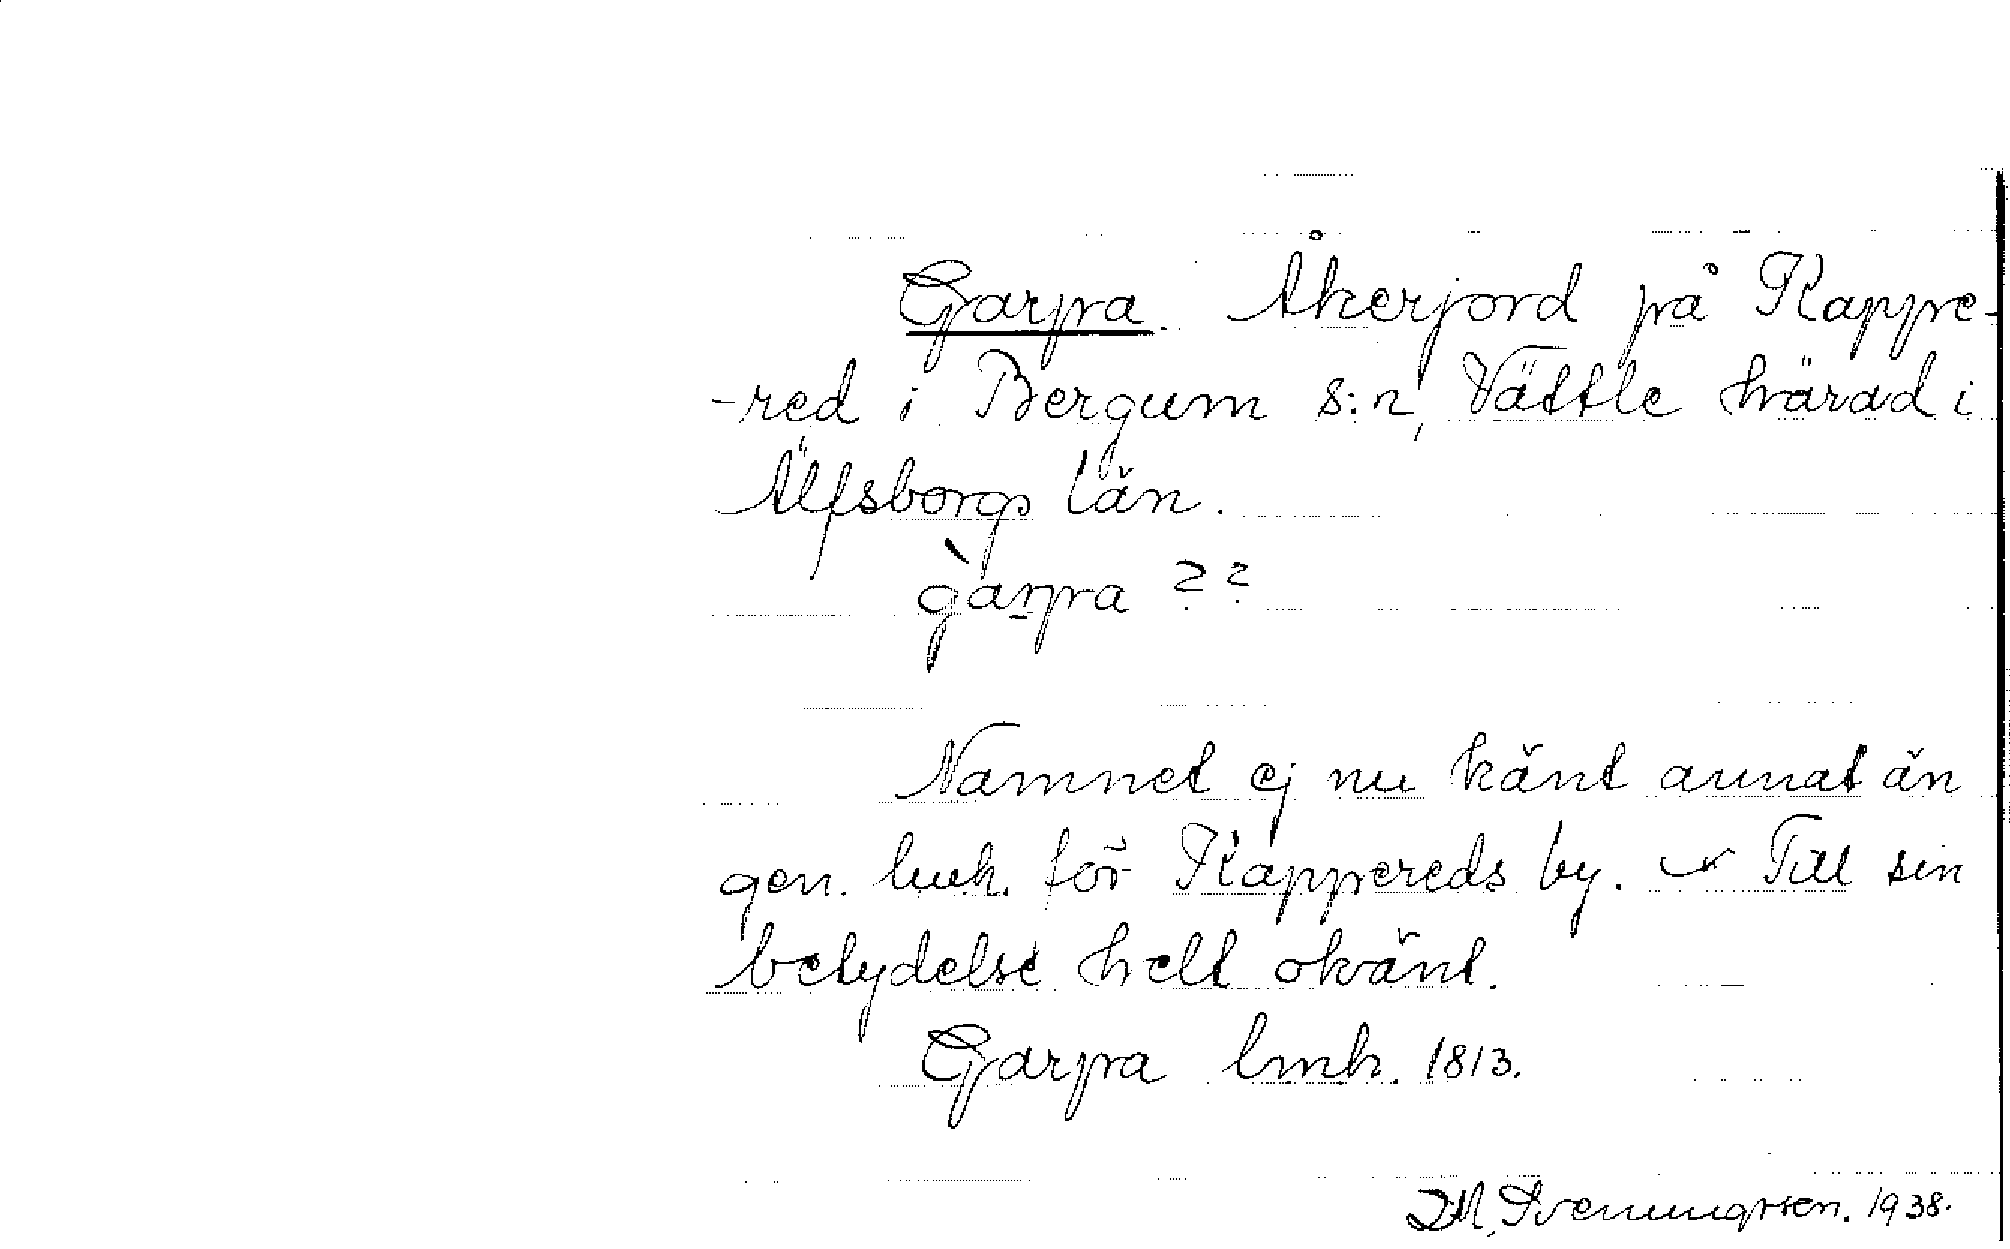 Garpa. Åkerjord på Kappe-
-red i Bergum s:n, Vättle härad i
Älfsborgs län.
gàrpa ??
Namnet ej nu känt annat än
gen. lmh. för Kappereds by. Till sin
betydelse helt okänt.
Garpa lmh. 1813.
D.M. Svenningsson. 1938.